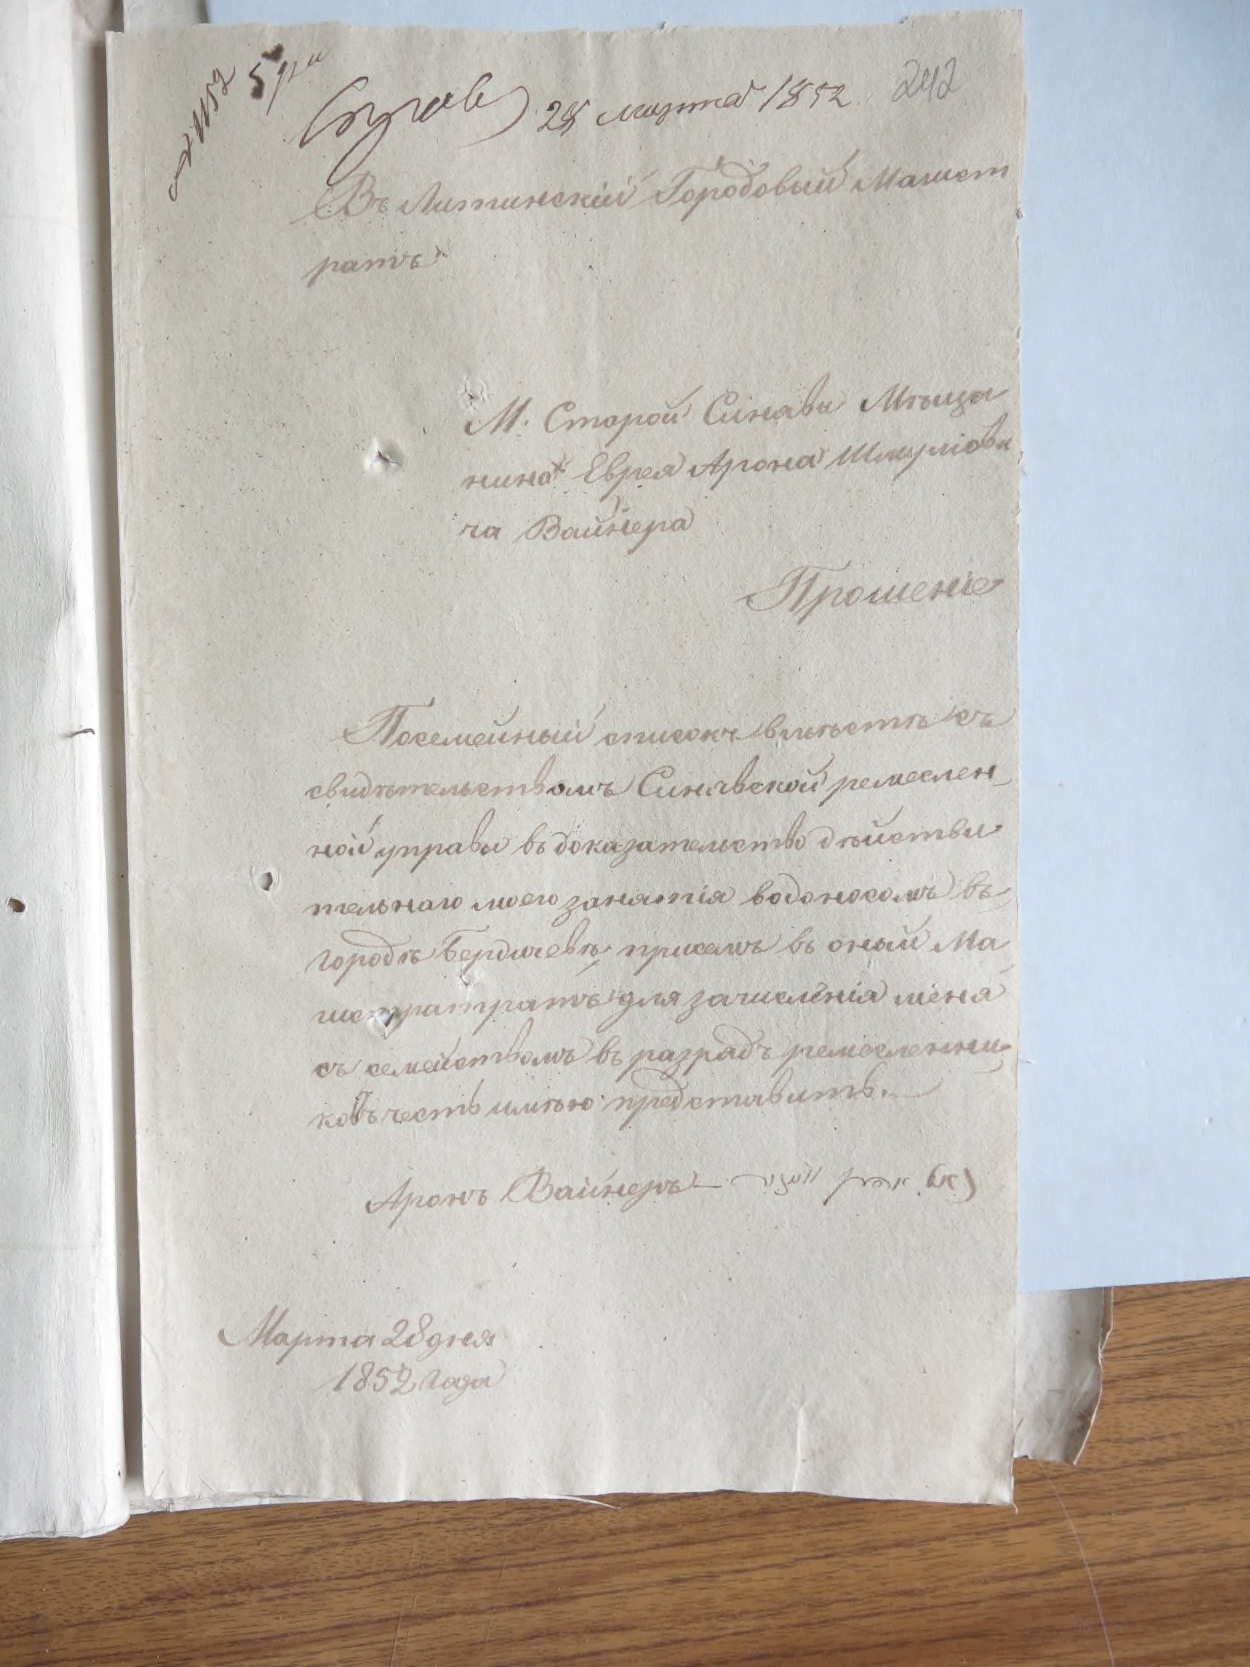 № 1152
28 марта 1852
242
Въ Литинскій Городовый Магист
ратъ
М. Старой Синявы Мѣща
нина Еврея Арона Шмуліови
ча Вайнера
Прошеніе
Посемейный списокъ вмѣстѣ съ
свидѣтельствомъ Синявской ремеслен
ной управы въ доказательство дѣйстви
тельнаго моего занятія водоносомъ въ
городѣ Бердичевѣ при семъ въ оный Ма
гистратратъ для зачисленія меня
съ семействомъ въ разрядъ ремесленни
ковъ честь имѣю представить.
Аронъ Вайнеръ
Марта 28 дня
1852 года